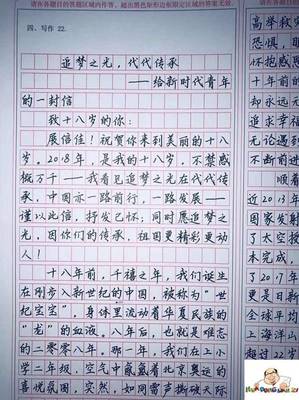 请在各题目的答题区域内作答，超出黑色矩形边框限定区域的答案无效。
四、写作 22.
追梦之光，代代传承
——给新时代青年
的一封信
致十八岁的你：
展信佳！祝贺你来到美丽的十八
岁。2018年，是我的十八岁，不禁感
慨万千——我看见追梦之光在代代传
承，中国亦一路前行，一路发展——
谨以此信，抒发己怀；同时愿追梦之
光，因你们的传承，祖国更精彩更动
人！
十八年前，千禧之年，我们诞生
在刚步入新世纪的中国，被称为“世
纪宝宝”，身体里流动着华夏民族的
“龙”的血液。八年后，也就是难忘
的二零零八年。那一年，我们在上小
学二年级，空气中氤氲着北京奥运的
喜悦氛围，突然，如同雷声撕破天际
请在各
高举救
恐惧，
怀抱感
十年
却永远
追求幸福
不断前
顺着
近2013年
国家发射
了太空授
未完成，
了2017年
更是日新
全球平均
上海洋山
超过22